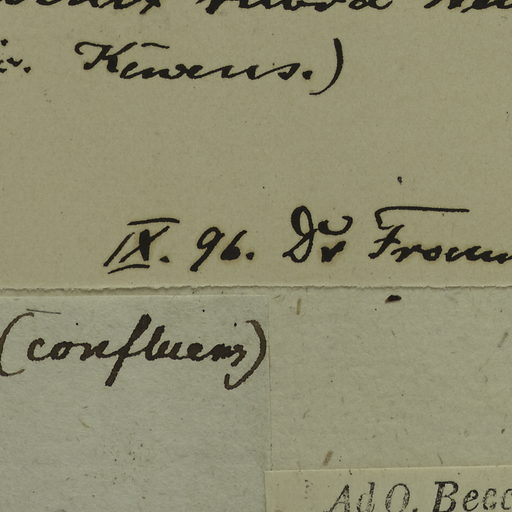 rubra
Kewens.)
IX. 96. Dr From
(confluens)
Ad O. Becc